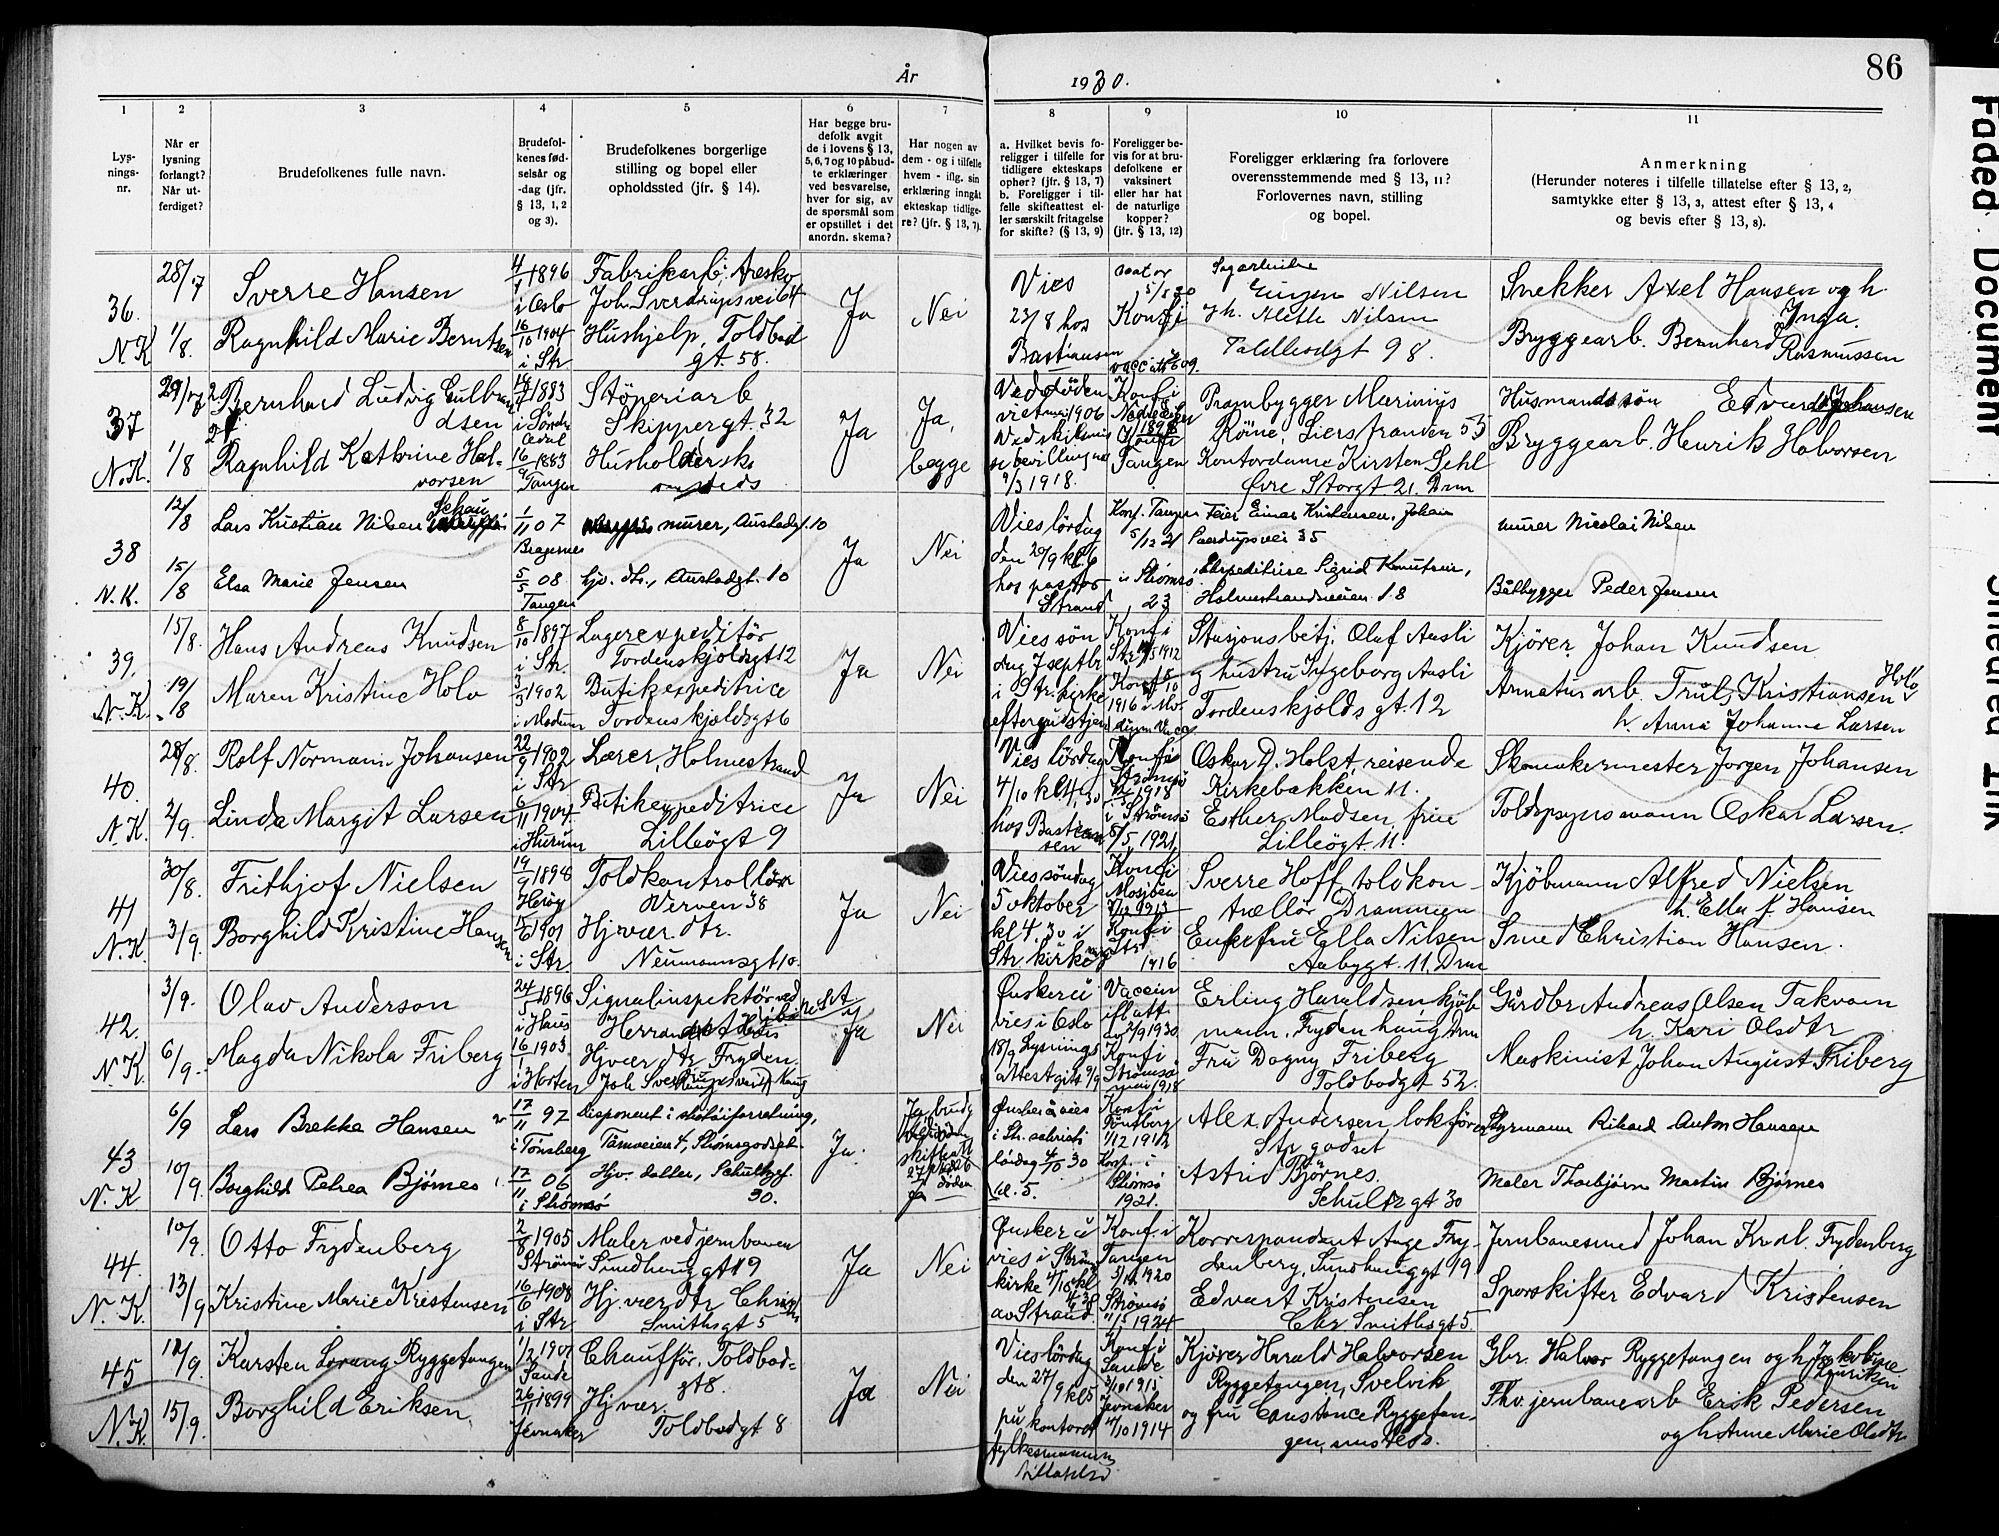 86
År
1930.
1
2
3
4
5
6
7
8
9
10
11
Lys-
nings-
nr.
Når er
lysning
forlangt?
Når ut-
ferdiget?
Brudefolkenes fulle navn.
Brudefol-
kenes fød-
selsår og
-dag (jfr.
§ 13, 1, 2
og 3).
Brudefolkenes borgerlige
stilling og bopel eller
opholdssted (jfr. § 14).
Har begge bru-
defolk avgit
de i lovens § 13,
5, 6, 7 og 10 påbud-
te erklæringer
ved besvarelse,
hver for sig, av
de spørsmål som
er opstillet i det
anordn. skema?
Har nogen av
dem - og i tilfelle
hvem - iflg. sin
erklæring inngått
ekteskap tidlige-
re? (jfr. § 13, 7).
a. Hvilket bevis fo-
religger i tilfelle for
tidligere ekteskaps
ophør? (jfr. § 13, 7)
b. Foreligger i til-
felle skifteattest el-
ler særskilt fritagelse
for skifte? (§ 13, 9)
Foreligger be-
vis for at bru-
defolkene er
vaksinert
eller har hat
de naturlige
kopper?
(jfr. § 13, 12)
Foreligger erklæring fra forlovere
overensstemmende med § 13, 11?
Forlovernes navn, stilling
og bopel.
Anmerkning
(Herunder noteres i tilfelle tillatelse efter § 13, 2,
samtykke efter § 13, 3, attest efter § 13, 4
og bevis efter § 13, 8).
36.
N.K
28/7
1/8.
Sverre Hansen
Ragnhild Marie Berntsen
4/1 1896
i Oslo
16/10 1904
i Str
Fabrikarb. Aresko
Joh. Sverdrupsvei 64
Hushjelp, Toldbod
gt. 58.
Ja
Nei
Vies
23/8 hos
Bastiansen
Konfi
Nilsen
Aleth Nilsen
98.
Snekker Axel Hansen og h.
Inga.
Bryggearb. Bernhard Rasmussen
37
N.K.
29/7
1/8
Bernhard Ludvig Gulbran
dsen
Ragnhild Kathrine Hal-
vorsen
1883
16/9 1883
Tangen
Støperiarb
Skippergt. 32
Husholdersk
Ja
Ja,
begge
Ved døden
1906
Ved skilsmis
sebevilling
9/3 1918.
Konfi
Tangen
Prambygger Marinius
Røine, Lierstranden 53
Kontordame Kirsten Sehl
Øvre Storgt 21. Drm
Husmandssøn Edvard Johansen
Bryggearb. Henrik Halvorsen
38
N.K.
12/8
15/8
Lars Kristian Nilsen Schau
Elsa Marie Jensen
1/11 07
Bragernes
5/5 08
Tangen
murer, Austadgt. 10
hjv. dtr., Austadgt. 10
Ja
Nei
Vies lørdag
den 20/9 kl 6
hos pastor
Strand
Konf. Tangen
5/12 21
i Strømsø
23
Feier Einar Kristensen, Johan
Sverdrupsvei 35
Ekspeditrise Sigrid Knutsen,
Holmestrandsveien 18
murer Nicolai Nilsen
Båtbygger Peder Jensen
39.
N.K.
15/8.
19/8
Hans Andreas Knudsen
Maren Kristine Holo
8/10 1897
i Str.
3/3 1902
i Modum
Lagerexpeditør
Tordenskjoldsgt 12
Butikexpeditrice
Tordenskjoldsgt 6
Ja
Nei
Vies søn
dag 7 septbr
i Str. kirke
efter gudstjen
Konfi
1912
Konf
1916 i Mo-
dum
Stasjonsbetj. Olaf Aasli
og hustru Ingeborg Aasli
Tordenskjolds gt. 12
Kjører Johan Knudsen
Armaturarb. Truls Kristiansen Holo
h. Anna Johanne Larsen
40.
N.K.
28/8.
2/9.
Rolf Normann Johansen
Linda Margit Larsen
22/9 1902
i Str
6/11 1904
i Hurum
Lærer, Holmestrand
Butikexpeditrice
Lilleøgt 9
Ja
Nei
Vies lørdag
4/10 kl 4,30
hos Bastian
sen
Konfi
Strømsø
1918
i Strømsø
5/5 1921.
Oskar D. Holst, reisende
Kirkebakken 11.
Esther Madsen, frue
Lilleøgt 11.
Skomakermester Jørgen Johansen
Toldopsynsmann Oskar Larsen.
41
N.K.
30/8.
3/9.
Frithjof Nielsen
Borghild Kristine Hansen
19/9 1898
Herøy
1901
i Str
Toldkontrollør
Verven 38
Hjværdtr.
Neumannsgt 10.
Ja
Nei
Vies søndag
5 oktober
kl 4.30 i
Str kirke
Konf i
Mosjøen
1913
Konf i
Str
1916
Sverre Hoff toldkon-
trollør Drammen
Enkefru Ella Nilsen
Aabygt. 11. Drm
Kjøbmann Alfred Nielsen
h. Ella f. Hansen
Smed Christian Hansen.
42.
N.K.
3/9.
6/9.
Olav Anderson
Magda Nikola Friberg
24/5 1896
i Haus
16/1 1903
i Horten
Signalinspektør ved
N.S.A
Hjværdtr, Fryden
haug
Ja
Nei
Ønsker å
vies i Oslo
18/9 Lysnings
attest gitt 9/9
Vaccin
ifl att
av 2/9 1930
Konf i
Strømsø
1918
Erling Haraldsen kjøb
mann, Frydenhaug Drm
Fru Dagny Friberg
Toldbodgt 52.
Gårdbr Andreas Olsen Takvam
h. Kari Olsdtr
Maskinist Johan August Friberg
43
N.K
6/9
10/9
Lars Brekke Hansen
Borghild Petrea Bjørnes
17/11 97
i Tønsberg
17/11 06
i Strømsø
Disponent i skotøiforretning,
Tamveien 4, Strømsgodset.
Hjv. datter, Schultzgt.
30.
Ja.
Ønsker å vies
i Str. sakristi
lørdag 4/10 30
kl. 5.
Konf i
Tønsberg
1/12 1912
Konf. i
Strømsø
1921.
Alex Andersen, lokfører
Str godset
Astrid Bjørnes.
Schultz gt 30
Styrmann Rikard Anton Hansen
Maler Thorbjørn Martin Bjørnes
44.
N.K.
10/9.
13/9
Otto Frydenberg
Kristine Marie Kristensen
2/8 1905
Strømsø
16/6 1908
i Str
Maler ved jernbanen
Sundhauggt 19
Hj. værdtr Chr
Smithsgt 5
Ja
Nei
Ønsker å
vies i Strøms
kirke 4/10 kl
av Strand.
Konf. i
Tangen
1920
Strømsø
1924
Korrespondent Aage Fry-
denberg, Sundhauggt 19
Edvart Kristensen
Chr Smithsgt 5.
Jernbanesmed Johan Karl Frydenberg
Sporskifter Edvard Kristensen
45
N.K.
12/9.
15/9.
Karsten Lorang Ryggetangen
Borghild Eriksen.
1901
Sande
26/11 1899
Jevnaker
Chauffør, Toldbod-
gt 8.
Hjvær.
Toldbodgt 8
Ja
Nei
Vies lørdag
den 27/9 kl 5
på kontoret
fylkesmannen
tillatelse
Konf i
Sande
3/10 1915
Jevnaker
4/10 1914
Kjører Harald Halvorsen
Ryggetangen, Svelvik
og fru Constance Ryggetan-
gen, smsteds.
Gbr. Halvor Ryggetangen og h. Jakobine
Lauriksen
Fhv. jernbanearb Erik Pedersen
og h Anne Marie Olsdtr
Faded Document
Smeared Ink